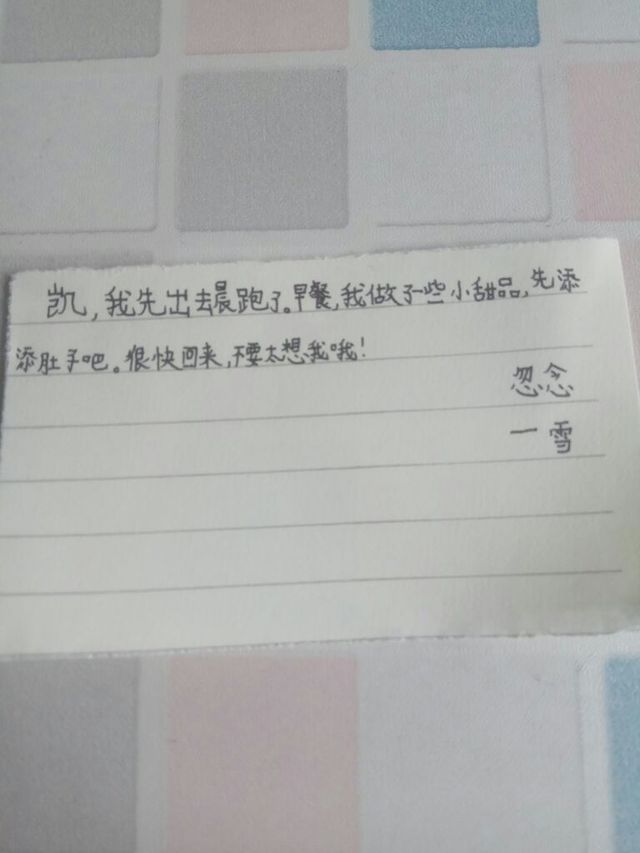 凯,我先出去晨跑了。早餐,我做了一些小甜品,先添
添肚子吧。很快回来,不要太想我哦!
忽念
一雪